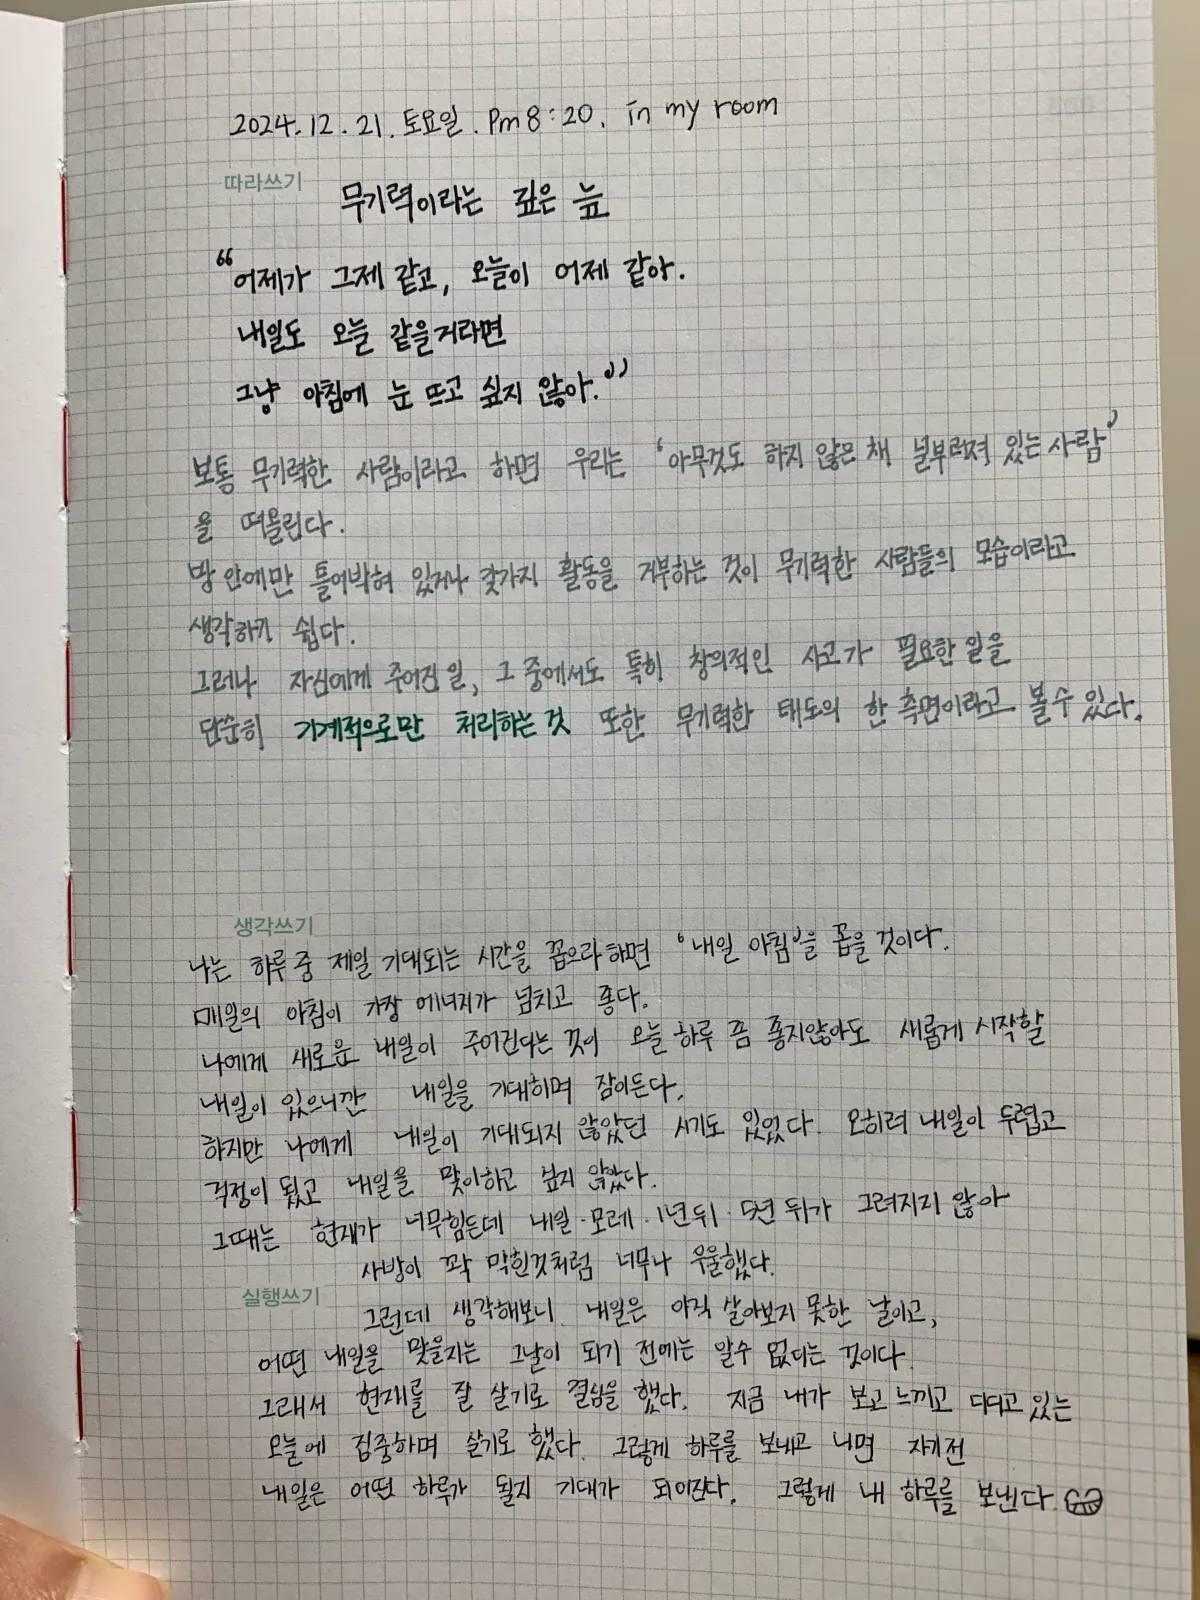 2024.12.21.토요일. Pm 8:20. in my room
따라쓰기
무기력이라는 깊은 늪
"어제가 그제 같고, 오늘이 어제 같아.
내일도 오늘 같을거라면
그냥 아침에 눈 뜨고 싶지 않아."
보통 무기력한 사람이라고 하면 우리는 '아무것도 하지 않은 채 널부러져 있는 사람'
을 떠올린다.
방 안에만 틀어박혀 있거나 갖가지 활동을 거부하는 것이 무기력한 사람들의 모습이라고
생각하기 쉽다.
그러나 자신에게 주어진 일, 그 중에서도 특히 창의적인 사고가 필요한 일을
단순히 기계적으로만 처리하는 것 또한 무기력한 태도의 한 측면이라고 볼 수 있다.
생각쓰기
나는 하루 중 제일 기대되는 시간을 꼽으라 하면 '내일 아침'을 꼽을 것이다.
매일의 아침이 가장 에너지가 넘치고 좋다.
나에게 새로운 내일이 주어진다는 것이 오늘 하루 쫌 좋지않아도 새롭게 시작할
내일이 있으니깐 내일을 기대히며 잠이든다.
하지만 나에게 내일이 기대되지 않았던 시기도 있었다. 오히려 내일이 두렵고
걱정이 됬고 내일을 맞이하고 싶지 않았다.
그때는 현재가 너무힘든데 내일·모레·1년뒤·5년 뒤가 그려지지 않아
사방이 꽉 막힌것처럼 너무나 우울했다.
실행쓰기
그런데 생각해보니 내일은 아직 살아보지 못한 날이고,
어떤 내일을 맞을지는 그날이 되기 전에는 알수 없다는 것이다.
그래서 현재를 잘 살기로 결심을 했다. 지금 내가 보고 느끼고 디디고 있는
오늘에 집중하며 살기로 했다. 그렇게 하루를 보내고 나면 자기전
내일은 어떤 하루가 될지 기대가 되어진다. 그렇게 내 하루를 보낸다.